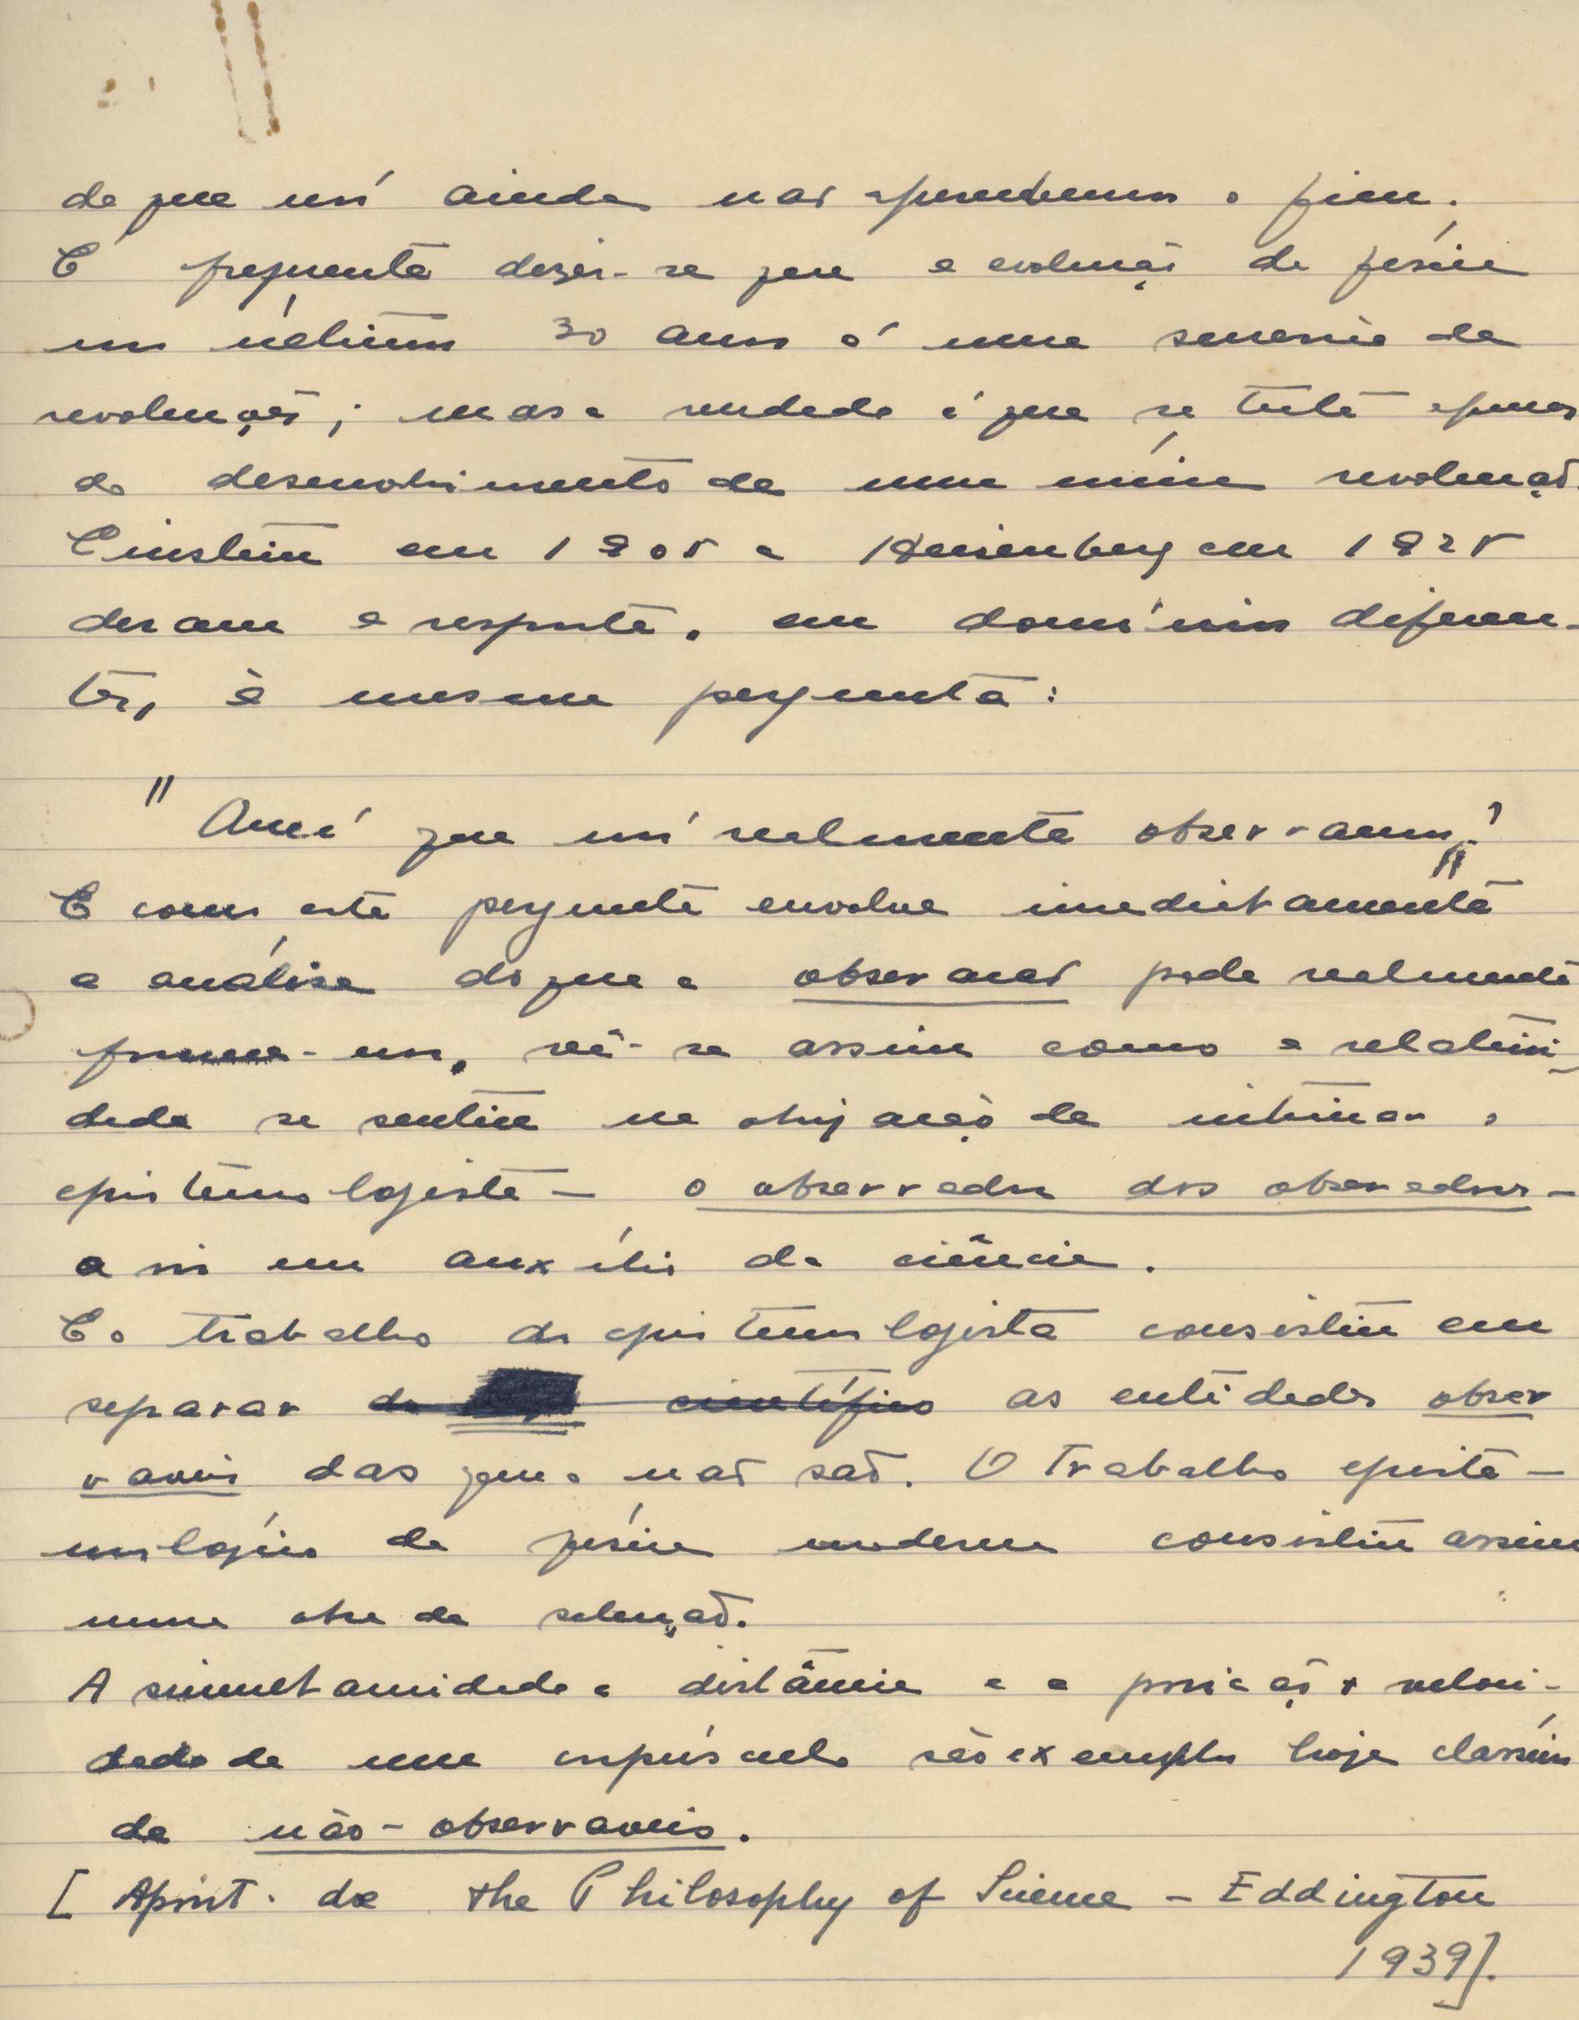 de que nós ainda não apercebemos o fim.
É frequente dizer-se que a evolução da física
nos últimos 30 anos é uma sucessão de
revoluções; mas a verdade é que se trata apenas
do desenvolvimento de uma única revolução.
Einstein em 1905 e Heisenberg em 1925
deram a resposta, em domínios diferen-
tes, à mesma pergunta:
"Que é que nós realmente observamos?"
E como esta pergunta envolve imediatamente
a análise do que a observação pode realmente
fornecer-nos, vê-se assim como a relativi-
dade se sentiu na obrigação de intimar o
epistemologista - o observador dos observadores -
a vir em auxílio da ciência.
E o trabalho do epistemologista consistiu em
separar do científico as entidades obser
vaveis das que o não são. O Trabalho episte-
mológico da física moderna consistiu assim
numa obra de selecção.
A simultaneidade a distância e a posição e veloci-
dade de um corpúsculo são exemplos hoje clássicos
de não-observaveis.
[Apont. de the Philosophy of Science - Eddington
1939].